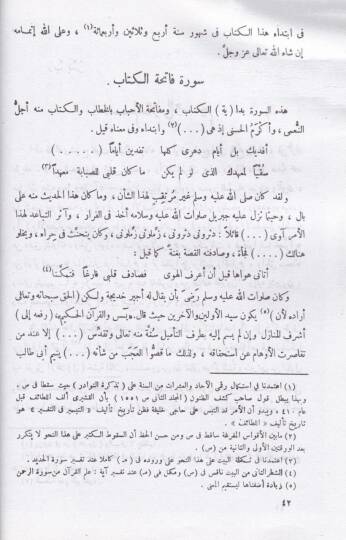 فى ابتداء هذا الكتاب فى شهور سنة أربع وثلاثين وأربعمائة(١) ، وعلى الله إتمامه
إن شاء الله تعالى عز وجلّ .
سورة فاتحة الكتاب .
هذه السورة بدا (ية) الكتاب ، ومفاتحة الأحباب بالخطاب والكتاب منه أجلُّ
النُّعمى ، وأكرَمُ الحسنى إذ هى (...)(٢) وابتداء وفى معناه قيل .
أفديك بل أيام دهرى كلها تفدين أياماً (.....)
سُقْيًا لمهدك الذى لو لم يكن ما كان قلبى للصبابة معهداً(٣)
ولقد كان صلى الله عليه وسلم غير مُرتقِبٍ لهذا الشأن ، وما كان هذا الحديث منه على
بال ، وحينما نزل عليه جبريل صلوات الله عليه وسلامه أخذ فى الفرار ، وآثر التباعد لهذا
الأمر آوى (...) قائلاً : دثرونى دثرونى ، زملونى زملونى ، وكان يتحنَّث فى حِراء ، ويخلو
هنالك (....) فجأة ، وصادفته القصة بغتةً كما قيل :
أتانى هواها قبل أن أعرف الهوى فصادف قلبى فارغاً فتمكّنا(٤)
وكان صلوات الله عليه وسلم رَضِىَ بأن يقال له أجير خديجة ولكن (الحق سبحانه وتعالى
أراده لأن)(٥) يكون سيد الأولين والآخرين حيث قال : يّس والقرآن الحكيم (رفعه إلى)
أشرف المنازل وإن لم يسم إليه بطرف التأميل سُنَّةً منه تعالى وتقدَّس (...) إلا عند من
تقاصرت الأوهام عن استحقاقه ، ولذلك ما قصُّوا العَجَب من شأنه (...) يتيم أبى طالب
(١) اعتمدنا فى استكمال رقمى الآحاد والعشرات من السنة على (تذكرة النوادر) حيث سقطا فى ص .
وهذا يبطل قول صاحب كشف الظنون (المجلد الثانى ص ١٥٥١) بأن القشيرى ألف اللطائف قبل
عام ٤١٠ ، ويبدو أن الأمر قد التبس على حاجى خليفة فظن تأريخ تأليف « التيسير فى التفسير » هو
تأريخ تأليف « اللطائف » .
(٢) مابين الأقواس المفرغة ساقط فى ص ومن حسن الحظ أن السقوط الكثير على هذا النحو لا يتكرر
بعد الورقتين الأولى والثانية من (ص) .
(٣) اعتمدنا فى تكملة البيت على هذا النحو على وروده فى (ص) كاملا عند تفسير سورة الحديد .
(٤) الشطر الثانى من البيت ناقص فى (ص) ومكمل فى (ص) عند تفسير آية : علم القرآن من سورة الرحمن
(٥) زيادة أضفناها ليستقيم المعنى .
٤٢